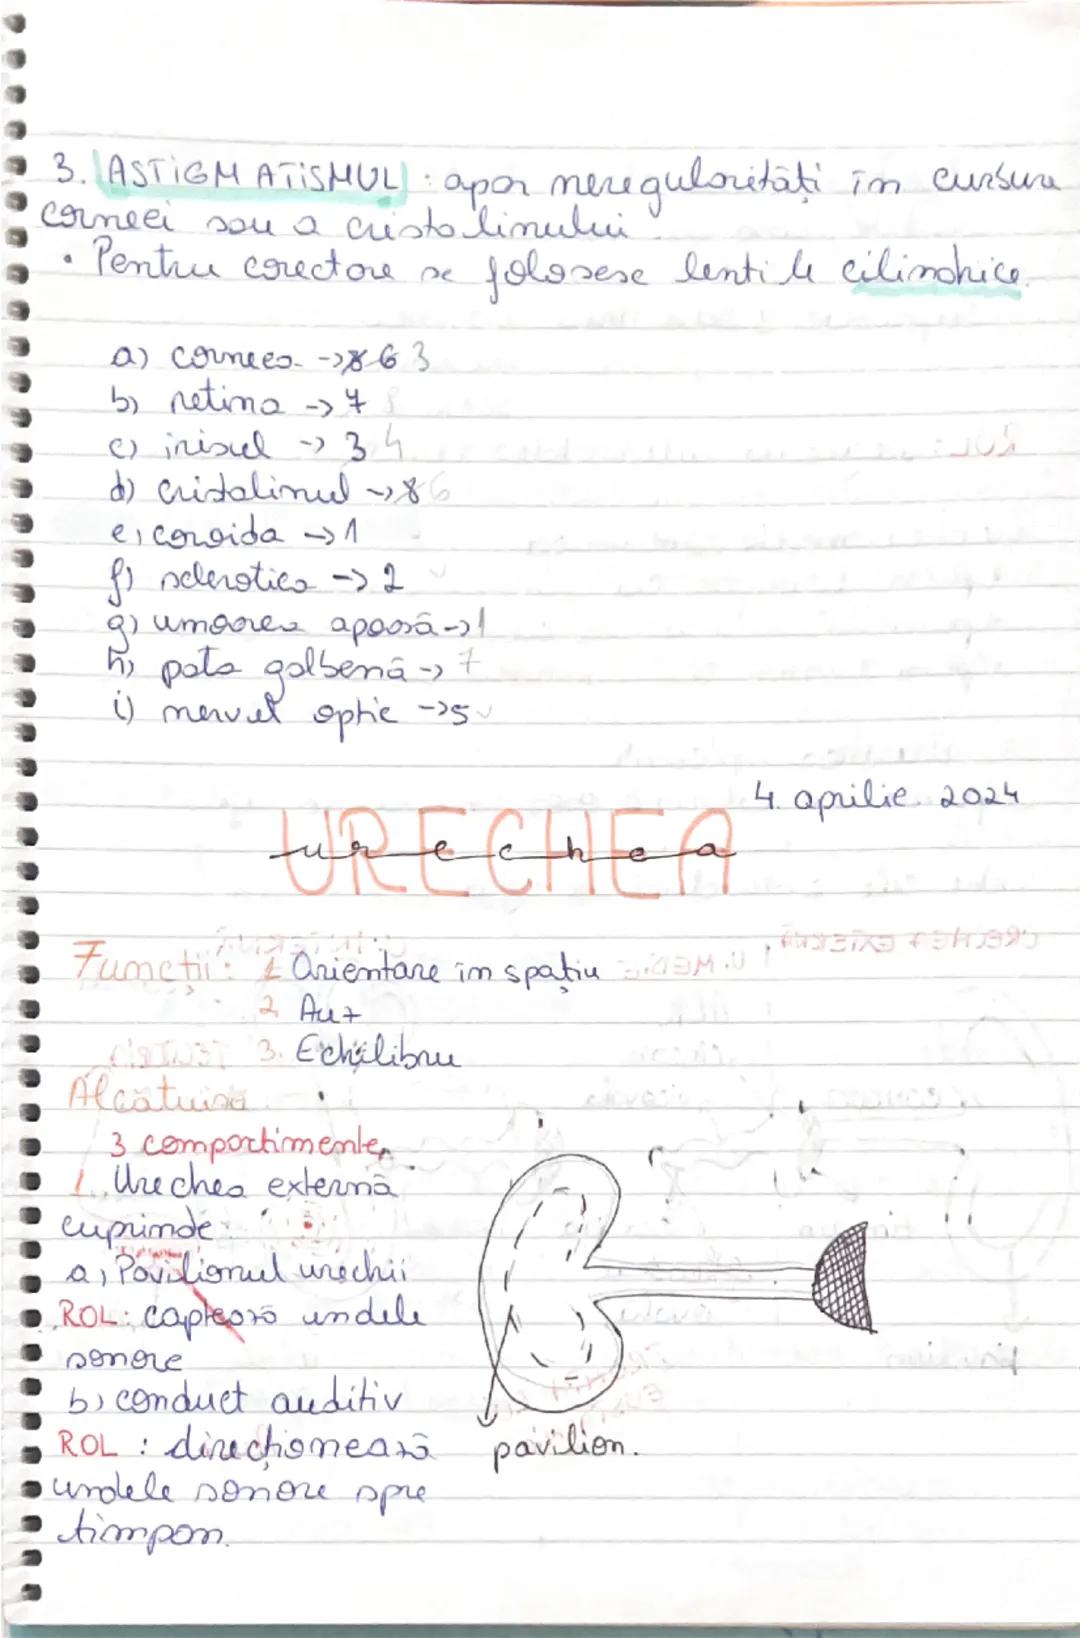 3. ASTIGMATISMUL : apar neregularități în cursura
corneei sau a cristalinului.
• Pentru corectare se folosesc lentile cilindrice.
a) corneea -> 8 6 3
b) retina -> 7
c) irisul -> 3 4
d) cristalinul -> 8 6
e) coroida -> 1
f) sclerotica -> 2
g) umoarea apoasă -> 1
h) pata galbenă -> 7
i) nervul optic -> 5
4. aprilie. 2024
URECHEA
urechea
Funcții: 1 Orientare în spațiu
2. Auz
3. Echilibru
Alcătuire
3 compartimente
1. Urechea externă
cuprinde:
a) Pavilionul urechii
ROL: captează undele
sonore
b) conduct auditiv
ROL : direcționează
undele sonore spre
timpan.
pavilion.